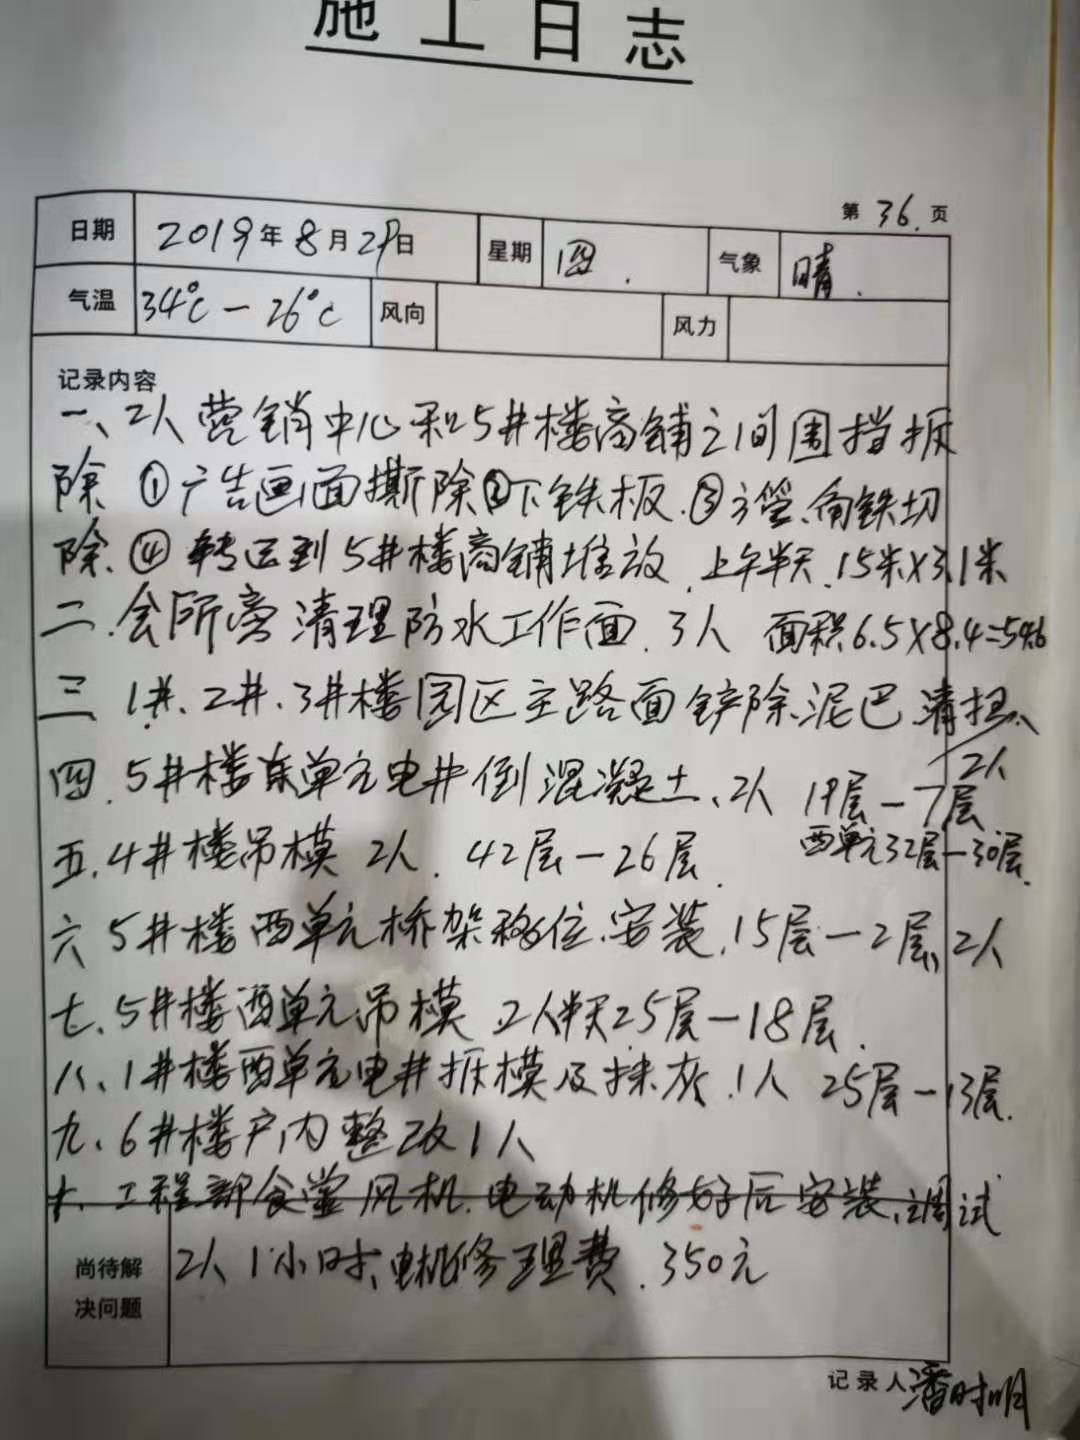 施工日志
第 36. 页
日期 2019年8月29日 星期 四. 气象 晴.
气温 34℃-26℃ 风向 风力
记录内容
一、2人 营销中心和5井楼商铺之间围挡拆
除 ①广告画面撕除②下铁板.③方管、角铁切
除、④转运到5井楼商铺堆放.上午半天.15米X3.1米
二.会所旁清理防水工作面.3人 面积6.5X8.4=54.6
三 1井、2井、3井楼园区主路面铲除泥巴.清扫、
2人
四.5井楼东单元电井倒混凝土、2人 19层-7层
西单元32层-30层.
五.4井楼吊模 2人. 42层-26层.
六 5井楼西单元桥架移位.安装.15层-2层,2人
七、5井楼西单元吊模 2人半天25层-18层.
八、1井楼西单元电井拆模及抹灰.1人 25层-13层.
九、6井楼户内整改1人
十、工程部食堂风机.电动机修好后安装、调试
尚待解决问题 2人1小时、电机修理费.350元
记录人 潘时明